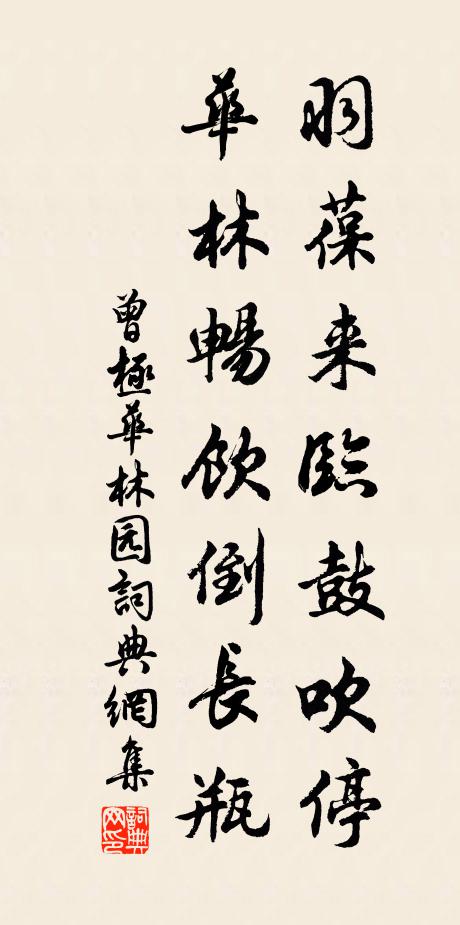 羽葆来臨鼓吹停
華林暢飲倒長瓶
曾極華林园詞典網集
詞典網印